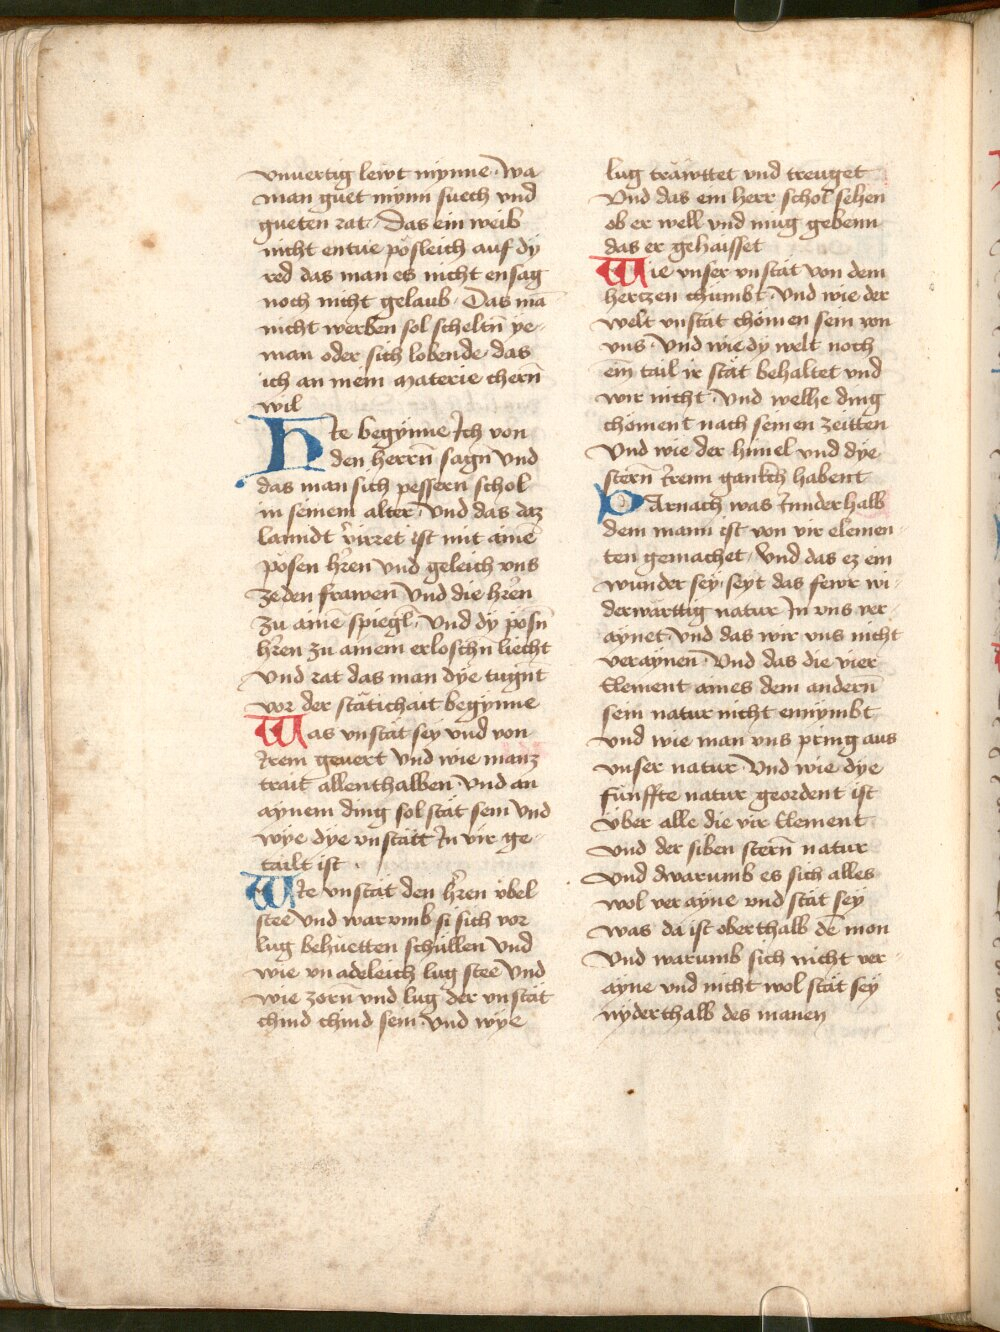 vnuertig lewt mynne · Wa
man guet mynn suech vnd
gueten rat · Das ein weib
nicht entue pösleich auf dy
red das man es nicht ensag
noch nicht gelaub · Das mā
nicht werben sol scheltn̄ ye-
man oder sich lobende · das
ich an mein materie chern̄
wil
Hie begynne Ich von
den herrn̄ sagn̄ Vnd
das man sich pessern schol
in seinem alter Vnd das daz
lanndt v̓irret ist mit aimē
pösen hr̄en Vnd geleich vns
ze den frawen Vnd die hr̄en
Zu aimē spiegl̄ · Vnd dy pösn̄
hr̄en zu ainem erloschn̄ liecht
Vnd rat das man dye tugnt
vor der stätichait begynne
Was vnstät sey vnd von
Irem geuert Vnd wie manz
trait allenthalben Vnd an
aynem ding sol stät sein Vnd
wye dye vnstätt In vir ge-
tailt ist
Wie vnstät den hr̄en übel
stee Vnd warumb si sich vor
lug behuetten schüllen Vnd
wie vn adeleich lug stee Vnd
wie zorn̄ vnd lug der vnstät
chind chind sein · Vnd wye
lug träwttet vnd treuget
Vnd das ein herr schol sehen
ob er well vnd mug gebenn
das er gehaisset
Wie vnser vnstät von dem
hertzen chümbt · Vnd wie der
welt vnstät chömen sein von
vns · Vnd wie dy welt noch
ein̄ tail ir stät behaltet vnd
wir nicht · Vnd welhe ding
choment nach seinen zeitten
Vnd wie der himel vnd dye
stern̄ Irenn habent
Darnach was Innderhalb
dem mann ist von vir elemen-
ten gemachet · Vnd das ez ein
wunder sey · seyt das fewr wi-
derwärttig natur In vns ver-
aynet Vnd das wir vns nicht
veraynen · Vnd das die vier
Element aines dem andern̄
sein natur nicht ennymbt
Vnd wie man vns pring aus
vnser natur · Vnd wie dye
fünffte natur geordent ist
Über alle die vir Element
Vnd der siben stern̄ natur
Vnd dwarumb es sich alles
wol verayne vnd stät sey
was da ist oberthalb dē mon
Vnd warumb sich nicht ver-
ayne vnd nicht wol stät sey
nyderthalb des manen